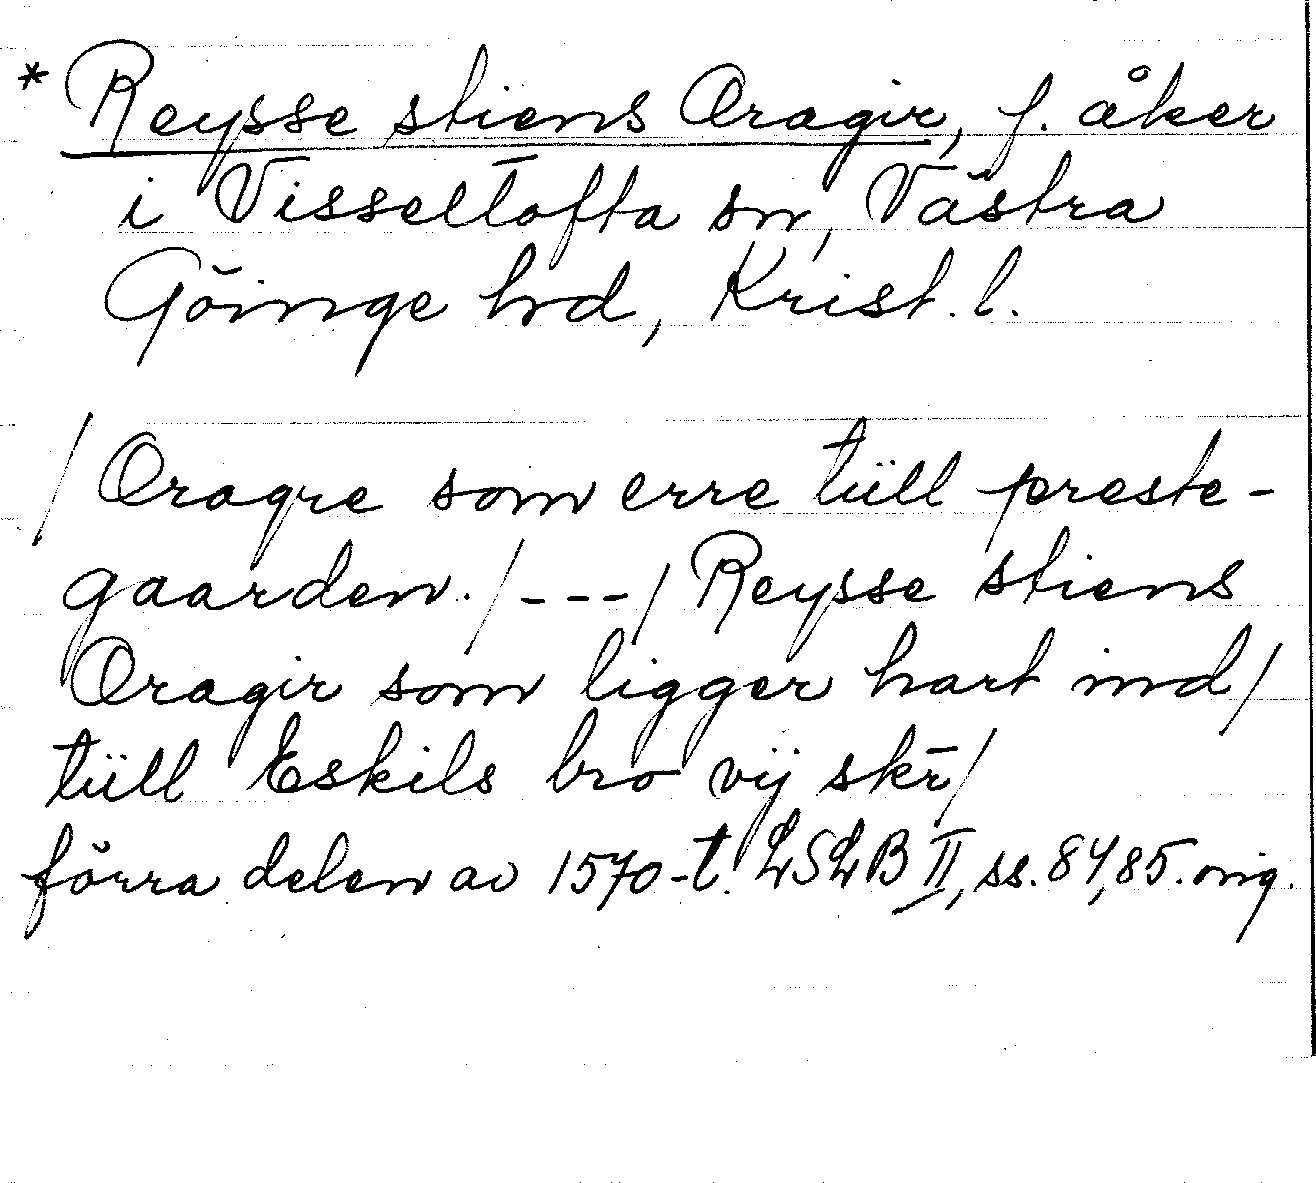 * Reysse stiens Oragir, f. åker
i Visseltofta sn, Västra
Göinge hd, Krist. l.
/ Oragre som erre tüll preste-
gaarden. / --- / Reysse stiens
Oragir som ligger hart ind /
tüll Eskils bro vÿ skr̄ /
förra delen av 1570-t. LSLB II, ss. 84, 85. orig.